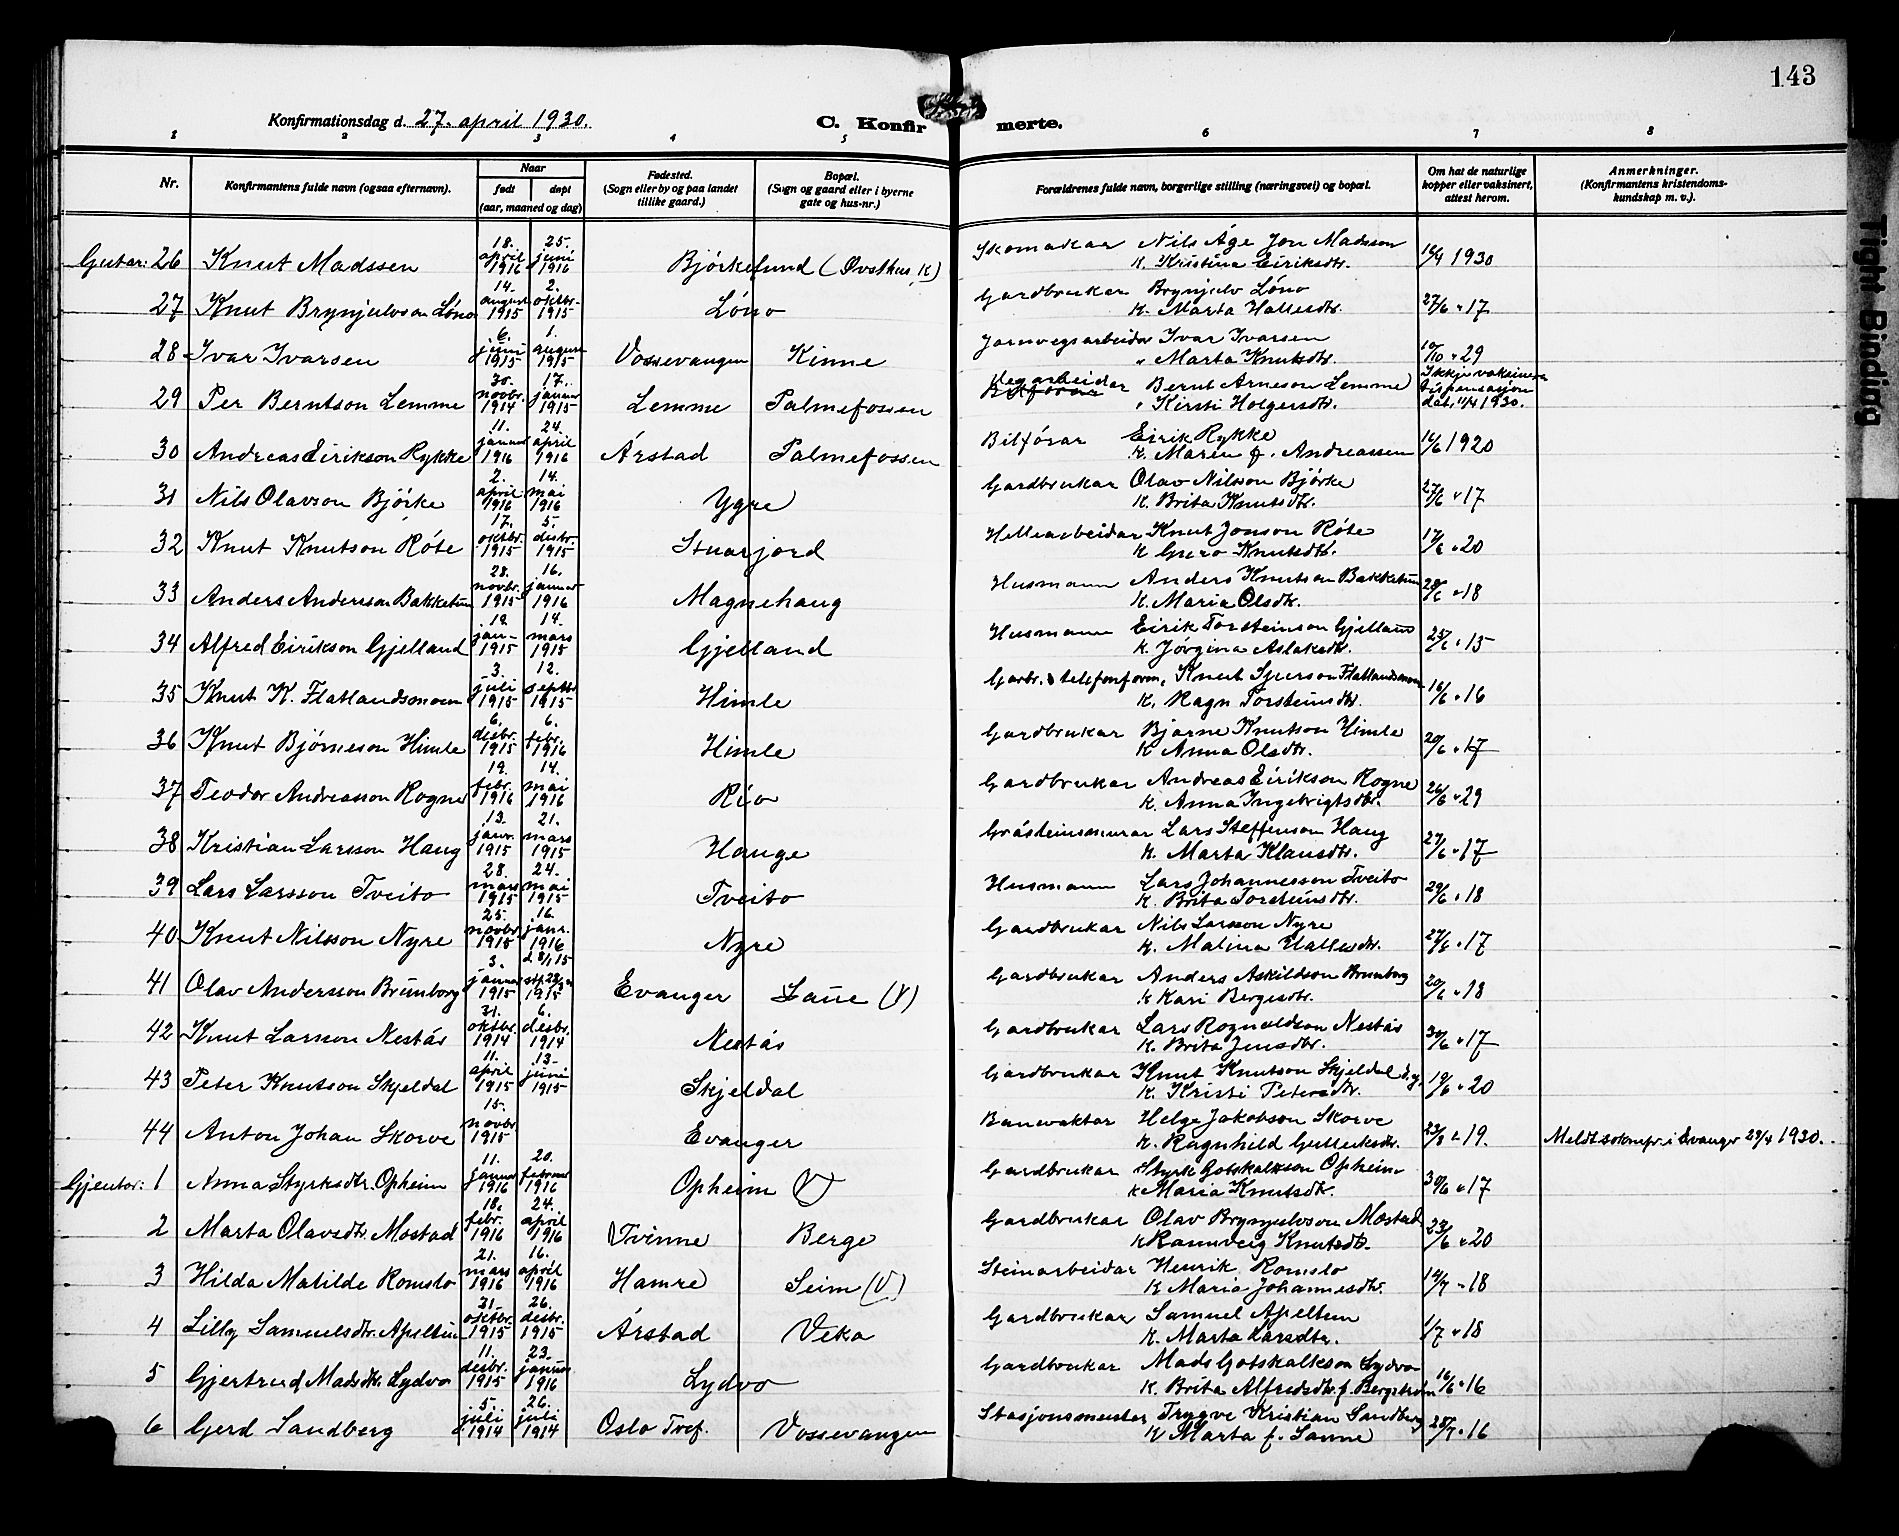 143
Konfirmationsdag d. 27. april 1930.
C. Konfirmerte.
1 2 3 4 5 6 7 8
Nr.
Konfirmantens fulde navn (ogsaa efternavn).
Naar
født døpt
(aar, maaned og dag)
Fødested.
(Sogn eller by og paa landet
tillike gaard.)
Bopæl.
(Sogn og gaard eller i byerne
gate og hus-nr.)
Forældrenes fulde navn, borgerlige stilling (næringsvei) og bopæl.
Om hat de naturlige
kopper eller vaksinert,
attest herom.
Anmerkninger.
(Konfirmantens kristendoms-
kundskap m. v.).
Gutar: 26 Knut Madssen 18. april 1916 25. juni 1916 Bjørkelund (Øvsthus, K) Skomakar Nils Åge Jon Madsson
K. Kristina Eiriksdtr. 1930
27 Knut Brynjulvson Løno 14. august 1915 2. oktbr. 1915 Løno Gardbrukar Brynjulv Løno
K. Marta Hallesdtr. 27/6 " 17
28 Ivar Ivarsen 6. juni 1915 1. august 1915 Vossevangen Kinne Jarnvegsarbeidar Ivar Ivarsen
" Marta Knutsdtr. 10/10 " 29
29 Per Berntson Lemme 30. novbr. 1914 17. januar 1915 Lemme Palmefossen Vegarbeidar Bernt Arneson Lemme
" Kirsti Holgersdtr. Ikkje vaksinera dispensasjon dat. 11/4 1930.
30 Andreas Eirikson Rykke 11. januar 1916 24. april 1916 Årstad Palmefossen Bilførar Eirik Rykke
K. Maren f. Andreassen 16/6 1920
31 Nils Olavson Bjørke 2. april 1916 14. mai 1916 Ygre Gardbrukar Olav Nilsson Bjørke
K. Brita Knutsdtr. 27/6 " 17
32 Knut Knutson Røte 17. oktbr. 1915 5. desbr. 1915 Stuarjord Hellearbeidar Knut Jonson Røte
K. Guro Knutsdtr. 17/6 " 20
33 Anders Anderson Bakketun 28. novbr. 1915 16. januar 1916 Magnehaug Husmann Anders Knutson Bakketun
K. Maria Olsdtr. 28/6 " 18
34 Alfred Eirikson Gjelland 19. jan- 1915 14. mars 1915 Gjelland Husmann Eirik Torsteinson Gjelland
K. Jørgina Aslaksdtr. 25/6 " 15
35 Knut K. Flatlandsmoen 3. juli 1915 12. septbr. 1915 Himle Garbr. & telefonform. Knut Sjurson Flatlandsmoen
K. Ragn Torsteinsdtr. 16/6 " 16
36 Knut Bjørneson Himle 6. desbr. 1915 6. febr. 1916 Himle Gardbrukar Bjørne Knutson Himle
K Anna Olsdtr. 20/6 " 17
37 Teodor Andreasson Rogne 19. febr. 1916 14. mai 1916 Rio Gardbrukar Andreas Eirikson Rogne
K. Anna Ingebrigtsdtr. 26/6 " 29
38 Kristian Larsson Haug 13. janr. 1915 21. mars 1915 Hauge Gråsteinsmurar Lars Steffenson Haug
K. Marta Klausdtr. 27/6 " 17
39 Lars Larsson Tveito 28. mars 1915 24. mai 1915 Tveito Husmann Lars Johannesson Tveito
K. Brita Torsteinsdtr. 29/6 " 18
40 Knut Nilsson Nyre 25. novbr. 1915 16. janr. 1916 Nyre Gardbrukar Nils Larsson Nyre
K. Malina Hallesdtr. 27/6 " 17
41 Olav Andersson Brunborg 3. januar 1915 1915 Evanger Saue (V) Gardbrukar Anders Askildson Brunborg
K Kari Bergesdtr. 20/6 " 18
42 Knut Larsson Nestås 31. oktbr. 1914 6. desbr. 1914 Nestås Gardbrukar Lars Rognaldson Nestås
K. Brita Jensdtr. 30/6 " 17
43 Peter Knutson Skjeldal 11. april 1915 13. juni 1915 Skjeldal Gardbrukar Knut Knutson Skjeldal d.y.
K. Kristi Petersdtr. 19/6 " 20
44 Anton Johan Skorve 15. novbr 1915 Evanger Banevaktar Helge Jakobson Skorve
K. Ragnhild Gulleiksdtr. 23/8 " 19. Meldt sokmpr. i Evanger 29/4 1930.
Gjentor: 1 Anna Styrksdtr. Opheim 11. januar 1916 20. februar 1916 Opheim (V) Gardbrukar Styrk Gotskalkson Opheim
K Maria Knutsdtr. 30/6 " 17
2 Marta Olavsdtr. Mostad 18. febr. 1916 24. april 1916 Tvinne Berge Gardbrukar Olav Brynjulvson Mostad
K Rannveig Knutsdtr. 23/6 " 20
3 Hilda Matilde Romslo 21. mars 1916 16. april 1916 Hamre Seim (V) Steinarbeidar Henrik Romslo
K Maria Johannesdtr. 14/7 " 18
4 Lilly Samuelsdtr. Apeltun 31. oktbr. 1915 26. desbr. 1915 Årstad Veka Gardbrukar Samuel Apeltun
K. Marta Larsdtr. 1/7 " 18
5 Gjertrud Madsdtr. Lydvo 11. desbr. 1915 23. januar 1916 Lydvo Gardbrukar Mads Gotskalkson Lydvo
K. Brita Alfredsdtr. f. Bergstrøm 16/6 " 16
6 Gerd Sandberg 5. juli 1914 26. juli 1914 Oslo Tref. Vossevangen Stasjonsmeister Trygve Kristian Sandberg
K Marta f. Sanne 28/7 " 16
Tight Binding